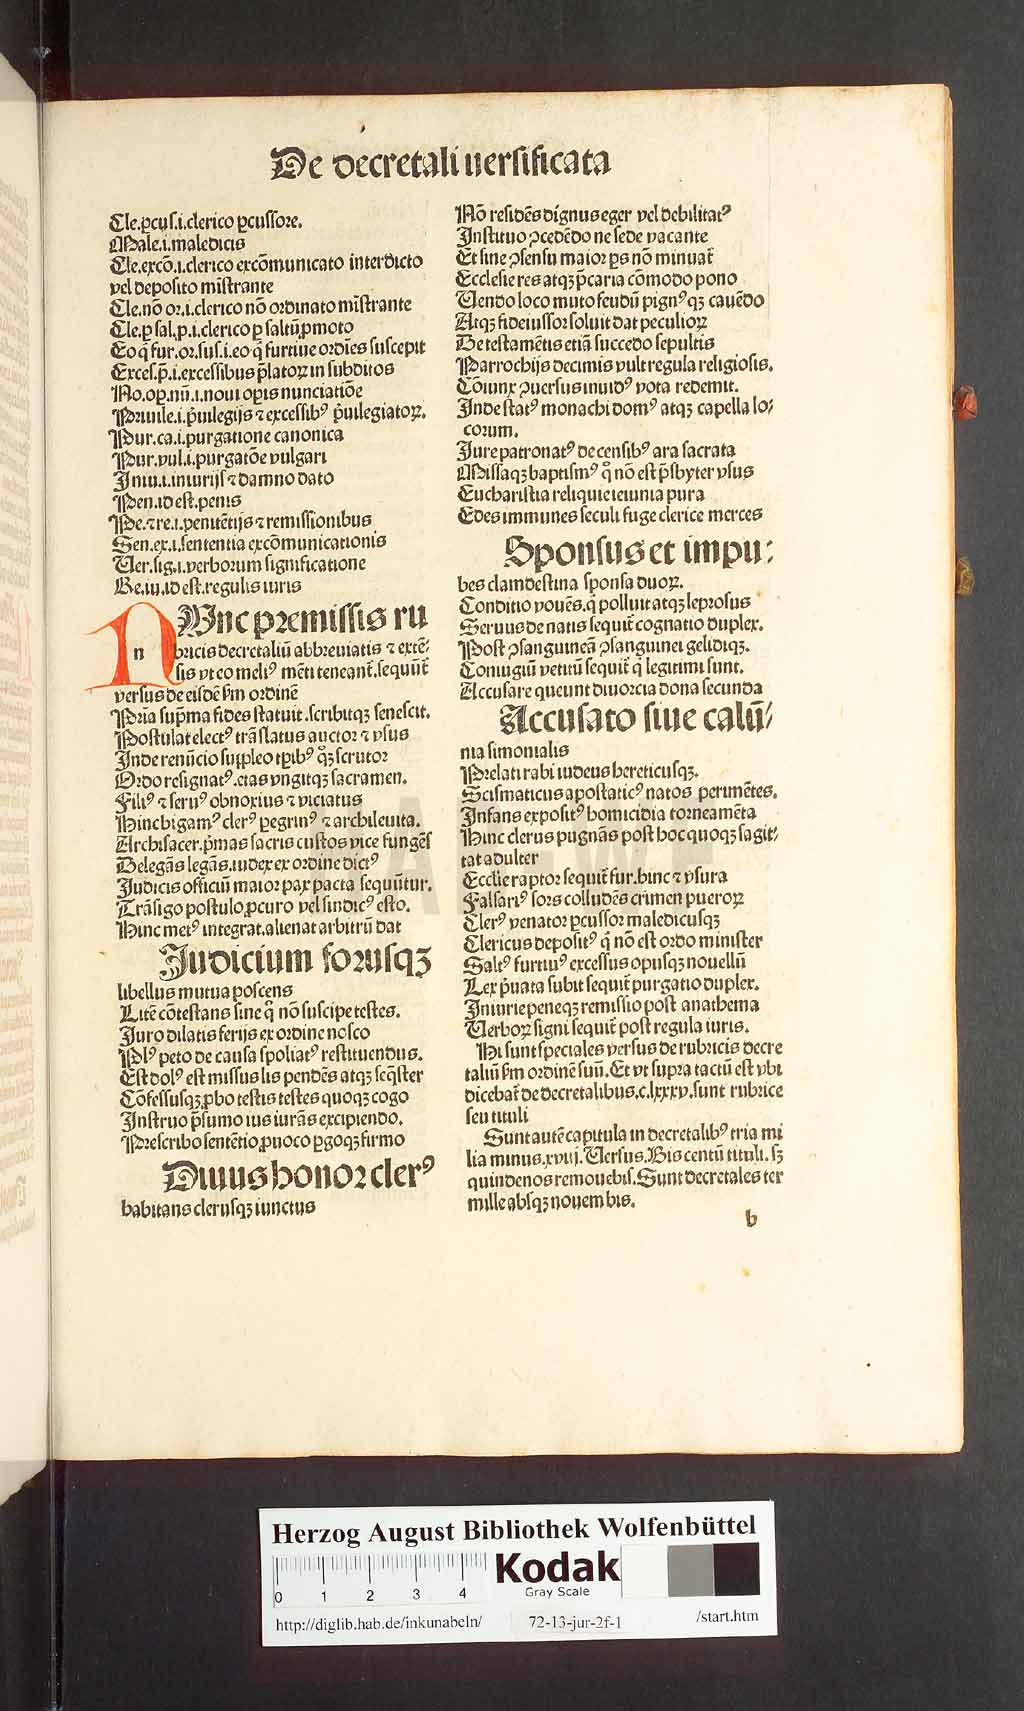 De decretali versificata
Cle.ꝑcuſ.i.clerico ꝑcuſſore.
Male.i.maledicis
Cle.excō.i.clerico excōmunicato interdicto
vel depoſito mīſtrante
Cle.nō or.i.clerico nō ordinato mīſtrante
Cle.ꝑ ſal.p.i.clerico ꝑ ſaltū ꝓmoto
Eo q̄ fur.or.ſus.i.eo q̄ furtiue ordīes ſuſcepit
Exceſ.p̄.i.exceſſibus p̄latoꝝ in ſubditos
No.oꝑ.nū.i.noui oꝑis nunciatiōe
Priuile.i.p̄uilegijs ⁊ exceſſibꝰ p̄uilegiatoꝝ.
Pur.ca.i.purgatione canonica
Pur.vul.i.purgatōe vulgari
Iniu.i.iniurijs ⁊ damno dato
Pen.id eſt.penis
Pe.⁊ re.i.penitētijs ⁊ remiſſionibus
Sen.ex.i.ſententia excōmunicationis
Ver.ſig.i.verborum ſignificatione
Re.iu.id eſt.regulis iuris
NVnc premiſſis ru
n bricis decretaliū abbreuiatis ⁊ extē⸗
ſis vt eo meliꝰ mēti teneant̄.ſequūt̄
verſus de eiſdē ſm ordinē
Pria ſup̄ma fides ſtatuit.ſcribitqꝫ ſeneſcit.
Poſtulat electꝰ trāſlatus auctor ⁊ vſus
Inde renūcio ſuppleo tꝑibꝰ qꝫ ſcrutor
Ordo reſignatꝰ.etas vngitqꝫ ſacramen.
Filiꝰ ⁊ ſeruꝰ obnoxius ⁊ viciatus
Hinc bigamꝰ clerꝰ ꝑegrinꝰ ⁊ archileuita.
Archiſacer.p̄mas ſacris cuſtos vice fungēs
Delegās legās.iudex ex ordine dictꝰ
Iudicis officiū maior pax pacta ſequūtur.
Trāſigo poſtulo ꝓcuro vel ſindicꝰ eſto.
Hinc metꝰ integrat.alienat arbitrū dat
Iudicium foruſqꝫ
libellus mutua poſcens
Litē cōteſtans ſine q̄ nō ſuſcipe teſtes.
Iuro dilatis ferijs ex ordine noſco
Plꝰ peto de cauſa ſpoliatꝰ reſtituendus.
Eſt dolꝰ eſt miſſus lis pendēs atqꝫ ſeq̄ſter
Cōfeſſuſqꝫ ꝓbo teſtis teſtes quoqꝫ cogo
Inſtruo p̄ſumo ius iurās excipiendo.
Preſcribo ſentētio ꝓuoco ꝑgoqꝫ firmo
Viuus honor clerꝰ
habitans cleruſqꝫ iunctus
Nō reſidēs dignus eger vel debilitatꝰ
Inſtituo ꝯcedēdo ne ſede vacante
Et ſine ꝯſenſu maior ꝑs nō minuat̄
Eccleſie res atqꝫ p̄caria cōmodo pono
Vendo loco muto feudū pignꝰ qꝫ cauēdo
Atqꝫ fideiuſſor ſoluit dat peculioꝝ
De teſtamētis etiā ſuccedo ſepultis
Parrochijs decimis vult regula religioſis.
Cōiunx ꝯuerſus inuidꝰ vota redemit.
Inde ſtatꝰ monachi domꝰ atqꝫ capella lo⸗
corum.
Iure patronatꝰ de cenſibꝰ ara ſacrata
Miſſaqꝫ baptiſmꝰ q̄ nō eſt p̄ſbyter vſus
Euchariſtia reliquie ieiunia pura
Edes immunes ſeculi fuge clerice merces
Sponſus et impu⸗
bes clamdeſtina ſponſa duoꝝ.
Conditio vouēs.q̄ polluit atqꝫ leproſus
Seruus de natis ſequit̄ cognatio duplex.
Poſt ꝯſanguineā ꝯſanguinei gelidiqꝫ.
Coniugiū vetitū ſequit̄ q̄ legitimi ſunt.
Accuſare queunt diuorcia dona ſecunda
Accuſato ſiue calū⸗
nia ſimonialis
Prelati rabi iudeus hereticuſqꝫ.
Sciſmaticus apoſtaticꝰ natos perimētes.
Infans expoſitꝰ homicidia torneamēta
Hinc clerus pugnās poſt hoc quoqꝫ ſagit⸗
tat adulter
Ecclie raptor ſequit̄ fur.hinc ⁊ vſura
Falſariꝰ ſors colludēs crimen pueroꝝ
Clerꝰ venator ꝑcuſſor maledicuſqꝫ
Clericus depoſitꝰ q̄ nō eſt ordo miniſter
Saltꝰ furtiuꝰ exceſſus opuſqꝫ nouellū
Lex p̄uata ſubit ſequit̄ purgatio duplex.
Iniurie peneqꝫ remiſſio poſt anathema
Verboꝝ ſigni ſequit̄ poſt regula iuris.
Hi ſunt ſpeciales verſus de rubricis decre
taliū ſm ordinē ſuū.Et vt ſupra tactū eſt vbi
dicebat̄ de decretalibus.c.lxxxv.ſunt rubrice
ſeu tituli
Sunt autē capitula in decretalibꝰ tria mi
lia minus.xviij.Verſus.Bis centū tituli.ſꝫ
quindenos remouebiſ.Sunt decretales ter
mille abſqꝫ nouem bis.
b
HAB WF
Herzog August Bibliothek Wolfenbüttel
0 1 2 3 4
Kodak
Gray Scale
http://diglib.hab.de/inkunabeln/ 72-13-jur-2f-1 /start.htm